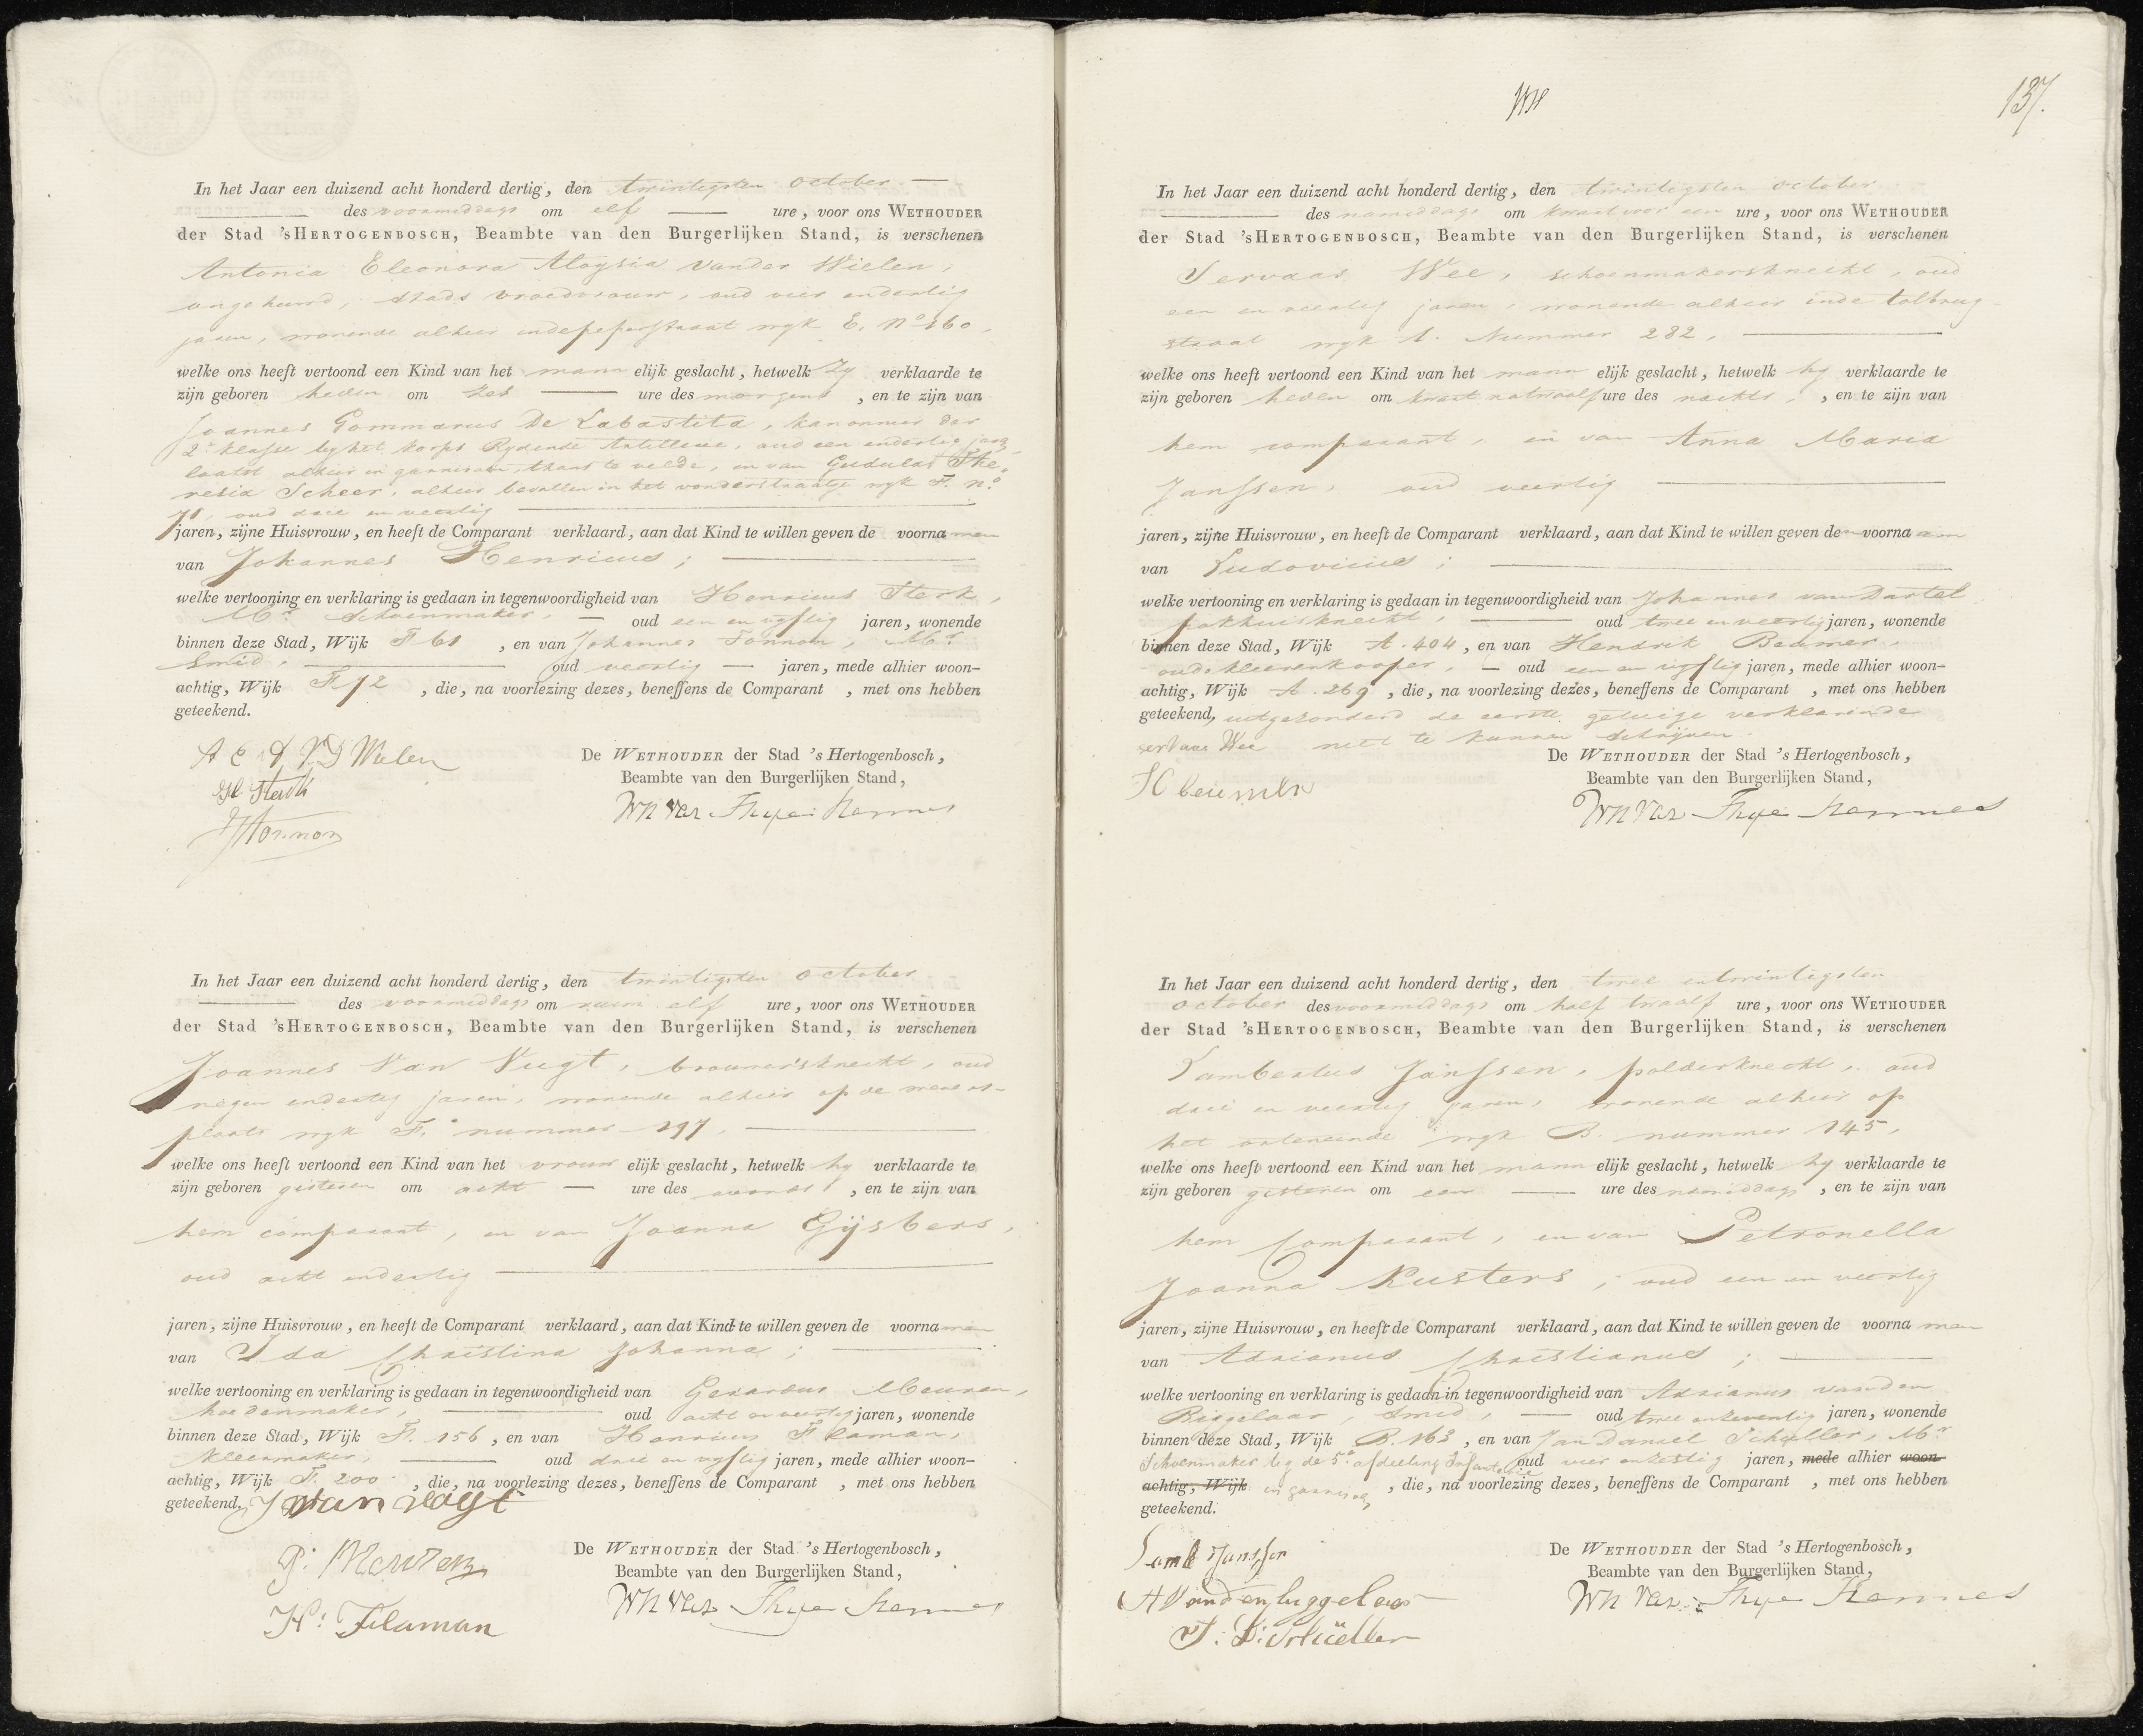 In het Jaar een duizend acht honderd dertig, den twintigsten October
des voormiddags om elf ure, voor ons WETHOUDER
der Stad 'sHERTOGENBOSCH, Beambte van den Burgerlijken Stand, is verschenen
Antonia Eleonora Aloysia vander Wielen,
ongehuwd, stads vroedvrouw, oud vier endertig
jaren, wonende alhier indepeperstraat wyk E. No 160,
welke ons heeft vertoond een Kind van het mann elijk geslacht, hetwelk Zy verklaarde te
zijn geboren heden om zes ure des morgens, en te zijn van
Joannes Gommarus De Labastita, kanonnier der
2e klasse by het korps Rydende Artillerie, oud een endertig jaren,
laatst alhier in garnisoen, thans te velde, en van Gudula The-
resia Scheer, alhier bevallen in het vonderstraatje wyk F. no
71, oud drie en veertig
jaren, zijne Huisvrouw, en heeft de Comparant verklaard, aan dat Kind te willen geven de voornamen
van Johannes Henricus;
welke vertooning en verklaring is gedaan in tegenwoordigheid van Henricus Sterk,
Mr Schoenmaker, oud een en vyftig jaren, wonende
binnen deze Stad, Wijk F 61, en van Johannes Tonnon, Mr
Smid, oud veertig jaren, mede alhier woon-
achtig, Wijk F. 72, die, na voorlezing dezes, beneffens de Comparant, met ons hebben
geteekend.
A E A V D Wielen
De WETHOUDER der Stad 's Hertogenbosch,
Beambte van den Burgerlijken Stand,
H Sterk
JTonnon
In het Jaar een duizend acht honderd dertig, den twintigsten october
des voormiddags om ruim elf ure, voor ons WETHOUDER
der Stad 'sHERTOGENBOSCH, Beambte van den Burgerlijken Stand, is verschenen
Joannes Van Vugt, brouwersknecht, oud
negen endertig jaren, wonende alhier op de
plaats wyk F. nummer 297,
welke ons heeft vertoond een Kind van het vrouw elijk geslacht, hetwelk hy verklaarde te
zijn geboren gisteren om acht ure des avonds, en te zijn van
hem comparant, en van Joanna Gijsbers,
oud acht endertig
jaren, zijne Huisvrouw, en heeft de Comparant verklaard, aan dat Kind te willen geven de voornamen
van Ida Christina Johanna;
welke vertooning en verklaring is gedaan in tegenwoordigheid van Gerardus Meuren,
hoedenmaker, oud acht en veertig jaren, wonende
binnen deze Stad, Wijk F. 156, en van Henricus Flaman,
kleermaker, oud drie en vyftig jaren, mede alhier woon-
achtig, Wijk F. 200, die, na voorlezing dezes, beneffens de Comparant, met ons hebben
geteekend. J van vugt
De WETHOUDER der Stad 's Hertogenbosch,
Beambte van den Burgerlijken Stand,
H: Flaman
137.
In het Jaar een duizend acht honderd dertig, den twintigsten october
des namiddags om kwart voor een ure, voor ons WETHOUDER
der Stad 'sHERTOGENBOSCH, Beambte van den Burgerlijken Stand, is verschenen
Servaas Wee, schoenmakersknecht, oud
een en veertig jaren, wonende alhier inde tolbrug-
straat wyk A. Nummer 282,
welke ons heeft vertoond een Kind van het mann elijk geslacht, hetwelk hy verklaarde te
zijn geboren heden om kwart na twaalf ure des nachts, en te zijn van
hem comparant, en van Anna Maria
Janssen, oud veertig
jaren, zijne Huisvrouw, en heeft de Comparant verklaard, aan dat Kind te willen geven den voornaam
van Ludovicus;
welke vertooning en verklaring is gedaan in tegenwoordigheid van Johannes van Dartel
pakhuisknecht, oud twee en veertig jaren, wonende
binnen deze Stad, Wijk A. 404, en van Hendrik Beumer,
oudekleerenkooper, oud een en vyftig jaren, mede alhier woon-
achtig, Wijk A. 269, die, na voorlezing dezes, beneffens de Comparant, met ons hebben
geteekend, uitgezonderd de eerste getuige verklarende
servaas Wee niet te kunnen schrijven.
De WETHOUDER der Stad 's Hertogenbosch,
Beambte van den Burgerlijken Stand,
H beumer
In het Jaar een duizend acht honderd dertig, den twee entwintigsten
October des voormiddags om half twaalf ure, voor ons WETHOUDER
der Stad 'sHERTOGENBOSCH, Beambte van den Burgerlijken Stand, is verschenen
Lambertus Janssen, polderknecht, oud
drie en veertig jaren, wonende alhier op
het ortheneinde wyk B. nummer 145,
welke ons heeft vertoond een Kind van het mann elijk geslacht, hetwelk hy verklaarde te
zijn geboren gisteren om een ure des namiddags, en te zijn van
hem Comparant, en van Petronella
Joanna Kusters, oud een en veertig
jaren, zijne Huisvrouw, en heeft de Comparant verklaard, aan dat Kind te willen geven de voornamen
van Adrianus Christianus;
welke vertooning en verklaring is gedaan in tegenwoordigheid van Adrianus vanden
Biggelaar, Smid, oud twee enzeventig jaren, wonende
binnen deze Stad, Wijk B. 163, en van Jan Daniel Schuller, Mr
Schoenmaker by de 5e afdeeling Infanterie oud vier enzestig jaren, mede alhier woon-
achtig, Wijk in garnisoen, die, na voorlezing dezes, beneffens de Comparant, met ons hebben
geteekend.
Lamb Janssen
De WETHOUDER der Stad 's Hertogenbosch,
Beambte van den Burgerlijken Stand,
A Vandenbiggelaar
J: D: Schüller